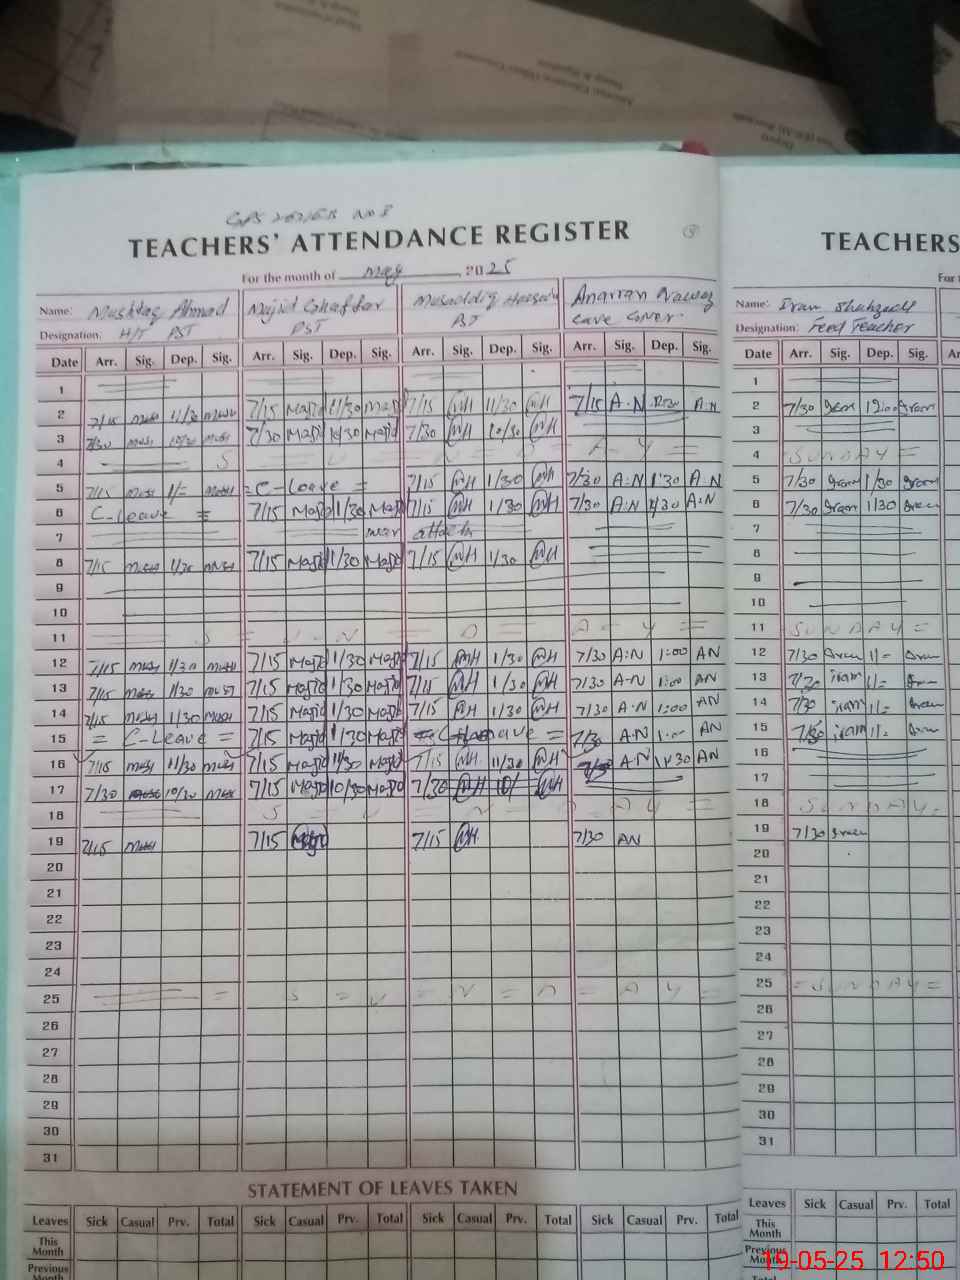 TEACHERS' ATTENDANCE REGISTER
For the month of May, 2025
Name: Mushtaq Ahmad Majid Ghaffar Musaddiq Hussain
Designation. H/T PST PST PST
Date Arr. Sig. Dep. Sig. Arr. Sig. Dep. Sig. Arr. Sig. Dep. Sig. Arr. Sig. Dep. Sig.
1
2 7/15 Mush 11/30 Mush 7/15 Majid 11/30 Majid 7/15 MH 11/30 MH 7/15 A.N A.N
3 7/30 Mush 10/30 Mush 7/30 Majid 10/30 Majid 7/30 MH 10/30 MH
4 S U N D A Y
5 7/15 Mush 1/= Mush = C-Leave = 7/15 MH 1/30 MH 7/30 A.N 1:30 A.N
6 C-Leave = 7/15 Majid 1/30 Majid 7/15 MH 1/30 MH 7/30 A.N 1/30 A.N
7 war attack
8 7/15 Mush 1/30 Mush 7/15 Majid 1/30 Majid 7/15 MH 1/30 MH
9
10
11 S U N D A Y
12 7/15 Mush 1/30 Mush 7/15 Majid 1/30 Majid 7/15 MH 1/30 MH 7/30 A:N 1:00 AN
13 7/15 Mush 1/30 Mush 7/15 Majid 1/30 Majid 7/15 MH 1/30 MH 7/30 A-N 1:00 AN
14 7/15 Mush 1/30 Mush 7/15 Majid 1/30 Majid 7/15 MH 1/30 MH 7/30 A.N 1:00 AN
15 = C-Leave = 7/15 Majid 1/30 Majid 7/30 A.N AN
16 7/15 Mush 11/30 Mush 7/15 Majid 11/30 Majid 7/15 MH 11/30 MH A.N 11:30 AN
17 7/30 10/30 Mush 7/15 Majid 10/30 Majid 7/30 MH 10/ MH
18 S U N D A Y
19 7/15 Mush 7/15 Majid 7/15 MH 7/30 AN
20
21
22
23
24
25 = S = U = N = D = A Y =
26
27
28
29
30
31
STATEMENT OF LEAVES TAKEN
Leaves Sick Casual Prv. Total Sick Casual Prv. Total Sick Casual Prv. Total Sick Casual Prv. Total
This Month
Previous Month
TEACHERS
For
Name: Iram Shahzadi
Designation: Feed Teacher
Date Arr. Sig. Dep. Sig. Ar
1
2 7/30 Iram 12:00 Iram
3
4 SUNDAY =
5 7/30 Iram 1/30 Iram
6 7/30 Iram 1/30 Iram
7
8
9
10
11 SUNDAY =
12 7/30 Iram 1/= Iram
13 7/30 iram 1/= Iram
14 7/30 iram 1/= Iram
15 iram 1/= Iram
16
17
18 SUNDAY=
19 7/30 Iram
20
21
22
23
24
25 = SUNDAY =
26
27
28
29
30
31
Leaves Sick Casual Prv. Total
This Month
Previous Month
19-05-25 12:50